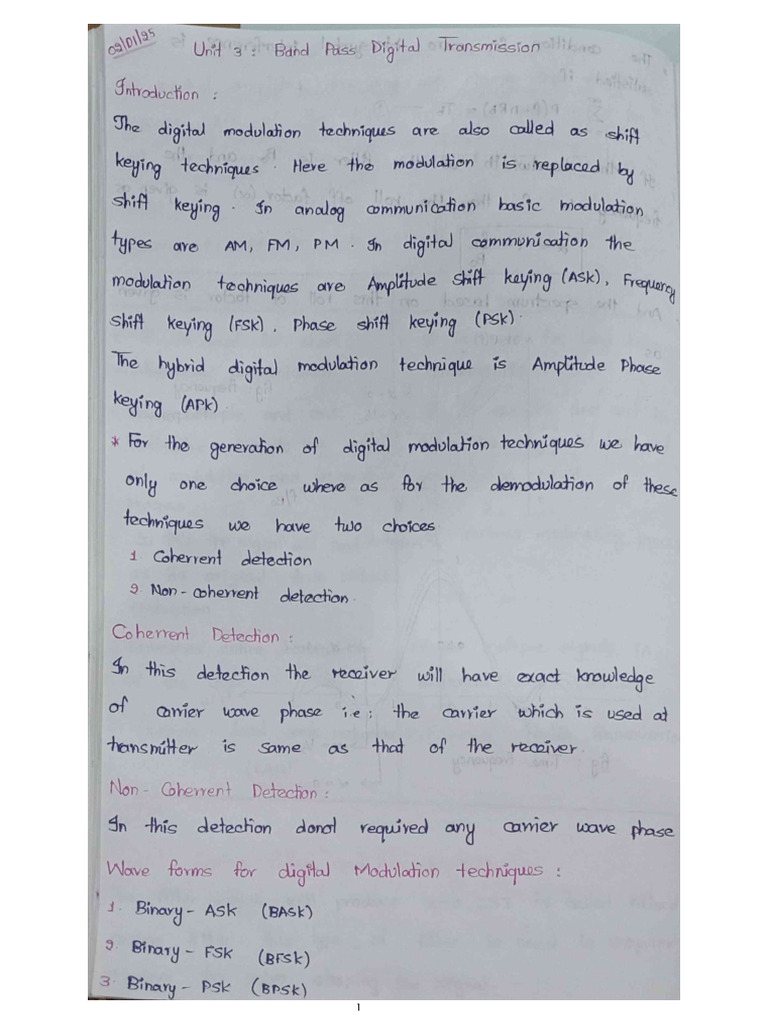 02/01/25
Unit 3 : Band Pass Digital Transmission
Introduction :
The digital modulation techniques are also called as shift
keying techniques. Here the modulation is replaced by
shift keying. In analog communication basic modulation
types are AM, FM, PM. In digital communication the
modulation techniques are Amplitude shift keying (ASK), Frequency
shift keying (FSK), Phase shift keying (PSK).
The hybrid digital modulation technique is Amplitude Phase
keying (APK)
* For the generation of digital modulation techniques we have
only one choice where as for the demodulation of these
techniques we have two choices
1. Coherrent detection
2. Non-coherrent detection.
Coherrent Detection :
In this detection the receiver will have exact knowledge
of carrier wave phase i.e: the carrier which is used at
transmitter is same as that of the receiver.
Non-Coherrent Detection :
In this detection donot required any carrier wave phase
Wave forms for digital Modulation techniques :
1. Binary - ASK (BASK)
2. Binary - FSK (BFSK)
3. Binary - PSK (BPSK)
1